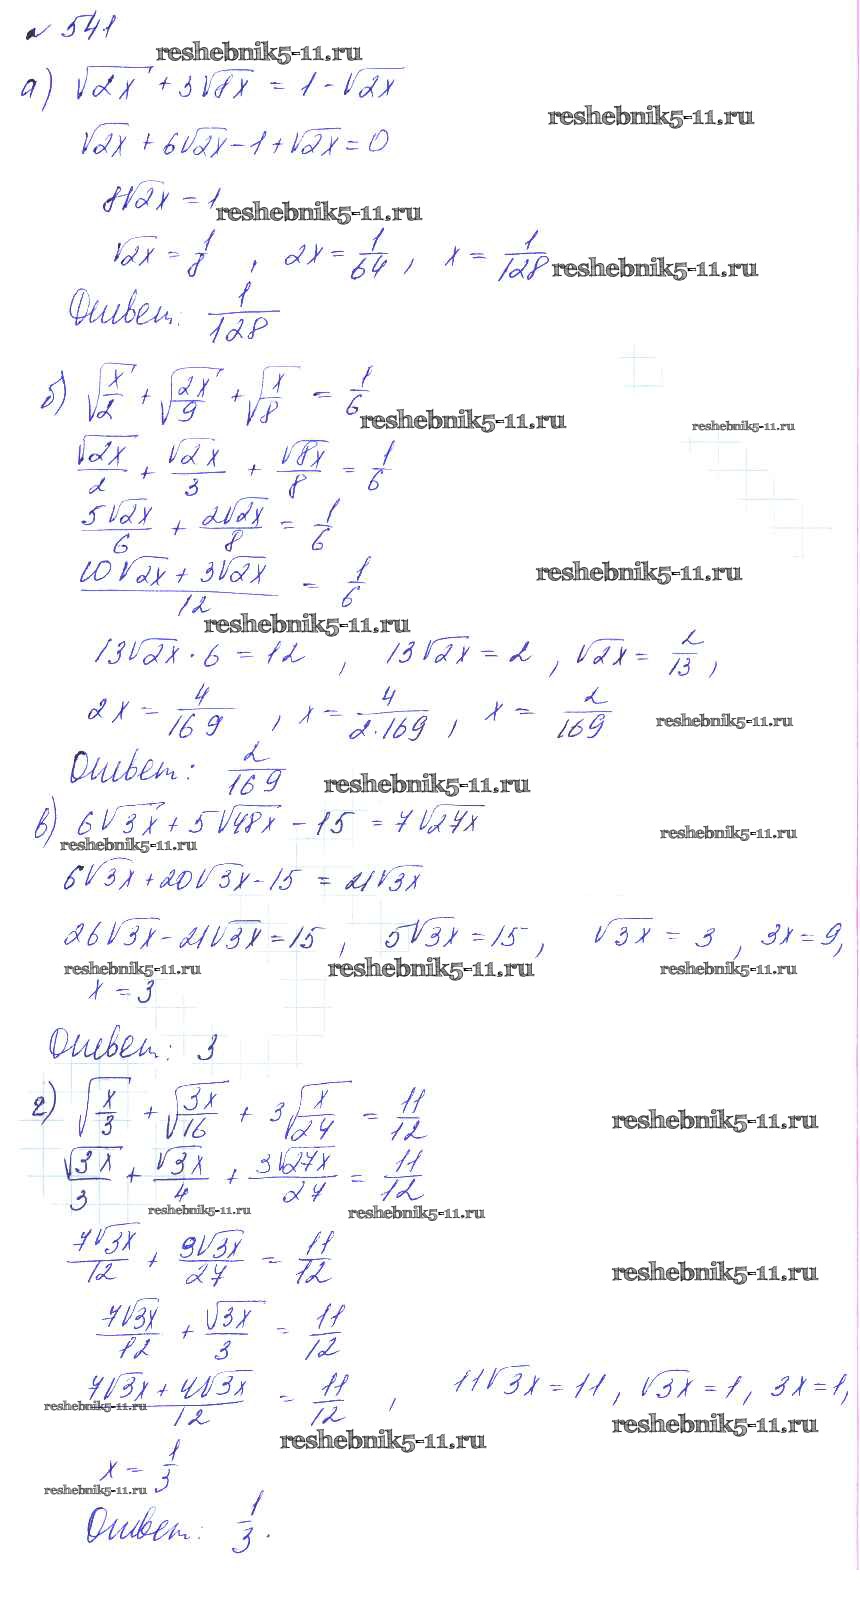 № 541
reshebnik5-11.ru
а) √2x + 3√8x = 1 - √2x
reshebnik5-11.ru
√2x + 6√2x - 1 + √2x = 0
8√2x = 1
reshebnik5-11.ru
√2x = 1/8 , 2x = 1/64 , x = 1/128
reshebnik5-11.ru
Ответ: 1/128
б) √x/2 + √2x/9 + √x/8 = 1/6
reshebnik5-11.ru
reshebnik5-11.ru
√2x/2 + √2x/3 + √8x/8 = 1/6
5√2x/6 + 2√2x/8 = 1/6
10√2x + 3√2x/12 = 1/6
reshebnik5-11.ru
reshebnik5-11.ru
13√2x · 6 = 12 , 13√2x = 2 , √2x = 2/13 ,
2x = 4/169 , x = 4/2·169 , x = 2/169
reshebnik5-11.ru
Ответ: 2/169
reshebnik5-11.ru
в) 6√3x + 5√48x - 15 = 7√27x
reshebnik5-11.ru
reshebnik5-11.ru
6√3x + 20√3x - 15 = 21√3x
26√3x - 21√3x = 15 , 5√3x = 15 , √3x = 3 , 3x = 9,
reshebnik5-11.ru
reshebnik5-11.ru
reshebnik5-11.ru
x = 3
Ответ: 3
г) √x/3 + √3x/16 + 3√x/27 = 11/12
reshebnik5-11.ru
√3x/3 + √3x/4 + 3√27x/27 = 11/12
reshebnik5-11.ru
reshebnik5-11.ru
7√3x/12 + 9√3x/27 = 11/12
reshebnik5-11.ru
7√3x/12 + √3x/3 = 11/12
7√3x + 4√3x/12 = 11/12 , 11√3x = 11 , √3x = 1, 3x = 1,
reshebnik5-11.ru
reshebnik5-11.ru
reshebnik5-11.ru
x = 1/3
reshebnik5-11.ru
Ответ: 1/3.